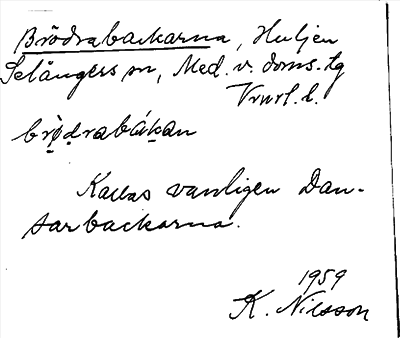 Brödrabackarna, Huljen
Selångers sn, Med. v. doms.tg
Vrnrl. l.
brödrabákan
Kallas vanligen Dan-
sarbackarna.
1959
K. Nilsson